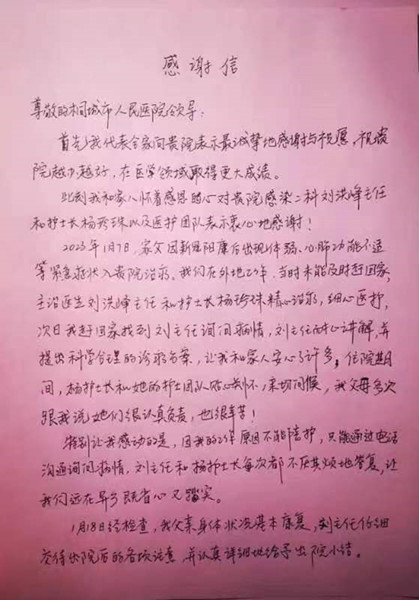 感谢信
尊敬的桐城市人民医院领导:
首先我代表全家向贵院表示最诚挚地感谢与祝愿,祝贵
院越办越好,在医学领域取得更大成绩。
此刻我和家人怀着感恩的心对贵院感染二科刘洪峰主任
和护士长杨珍珠以及医护团队表示衷心地感谢!
2023年1月7日,家父因新冠阳康后出现体弱、心肺功能不适
等紧急症状入贵院治疗。我们在外地工作,当时未能及时赶回家,
主治医生刘洪峰主任和护士长杨珍珠精心治疗,细心医护,
次日我赶回家找到刘主任询问病情,刘主任耐心讲解,并
提出科学合理的诊疗方案,让我和家人安心了许多,住院期
间,杨护士长和她的护士团队贴心关怀,亲切问候,我父母多次
跟我说她们很认真负责,也很辛苦!
特别让我感动的是,因我的工作原因不能陪护,只能通过电话
沟通询问病情,刘主任和杨护士长每次都不厌其烦地答复,让
我们远在异乡既省心又踏实。
1月18日经检查,我父亲身体状况基本康复,刘主任仔细
交待出院后的各项注意,并认真详细地给予出院小结。